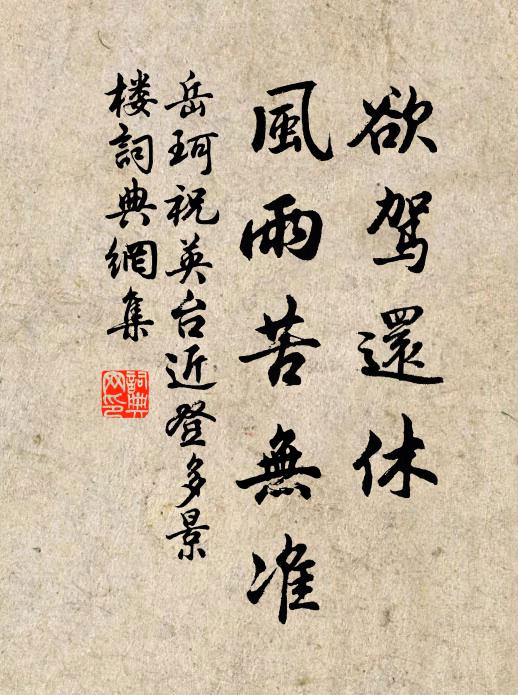 欲駕還休
風雨苦無准
岳珂祝英台近登多景
楼詞典網集
詞典
网印